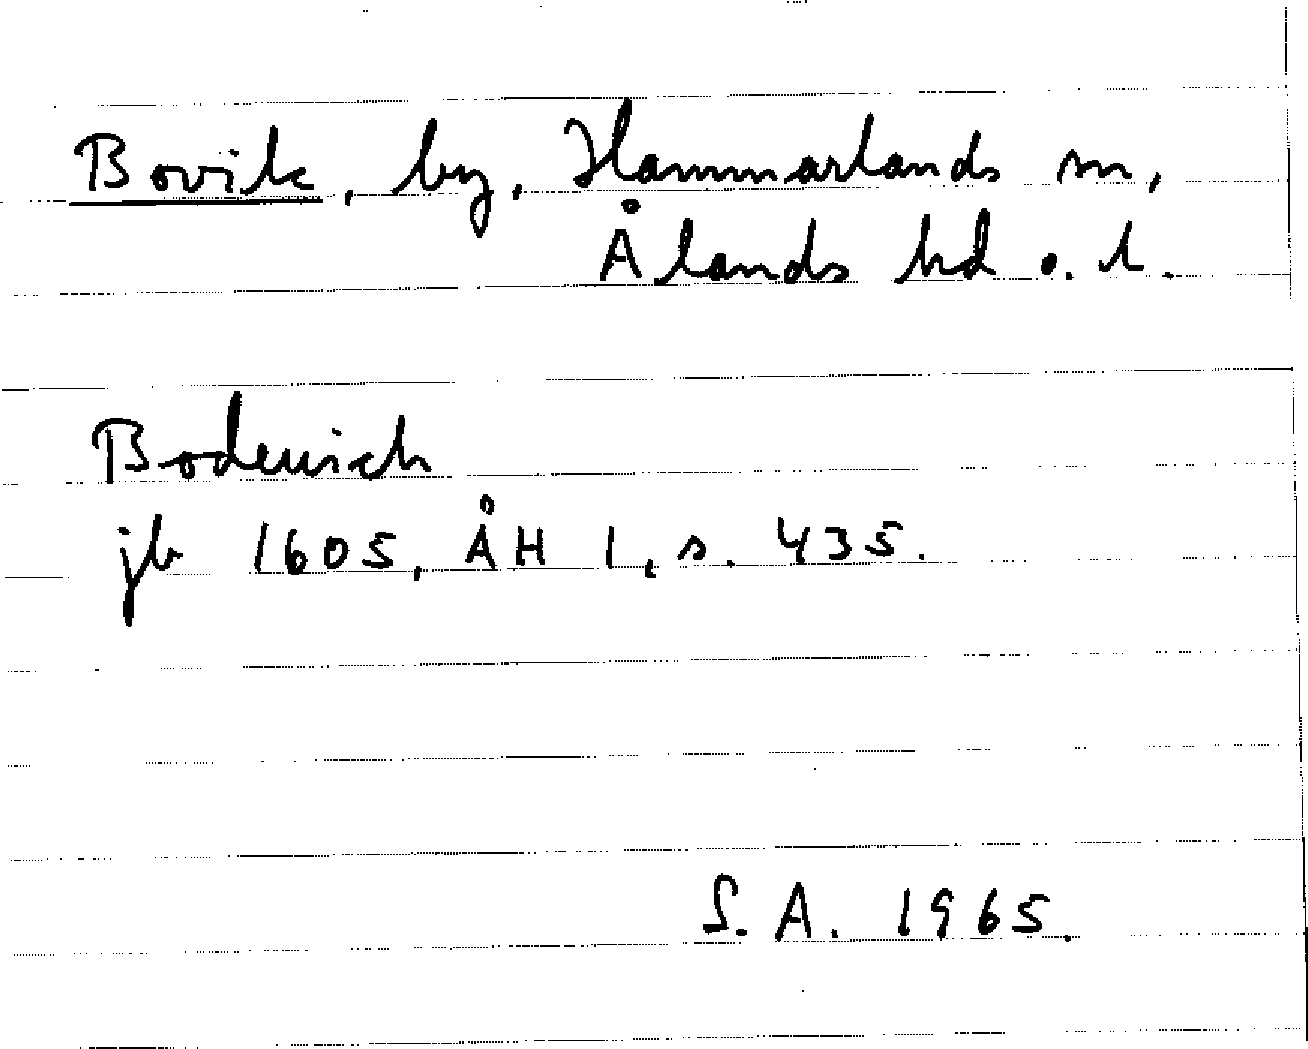 Bovik, by, Hammarlands sn,
Ålands hd o. l.
Bodewich
jb 1605, ÅH 1, s. 435.
S. A. 1965.